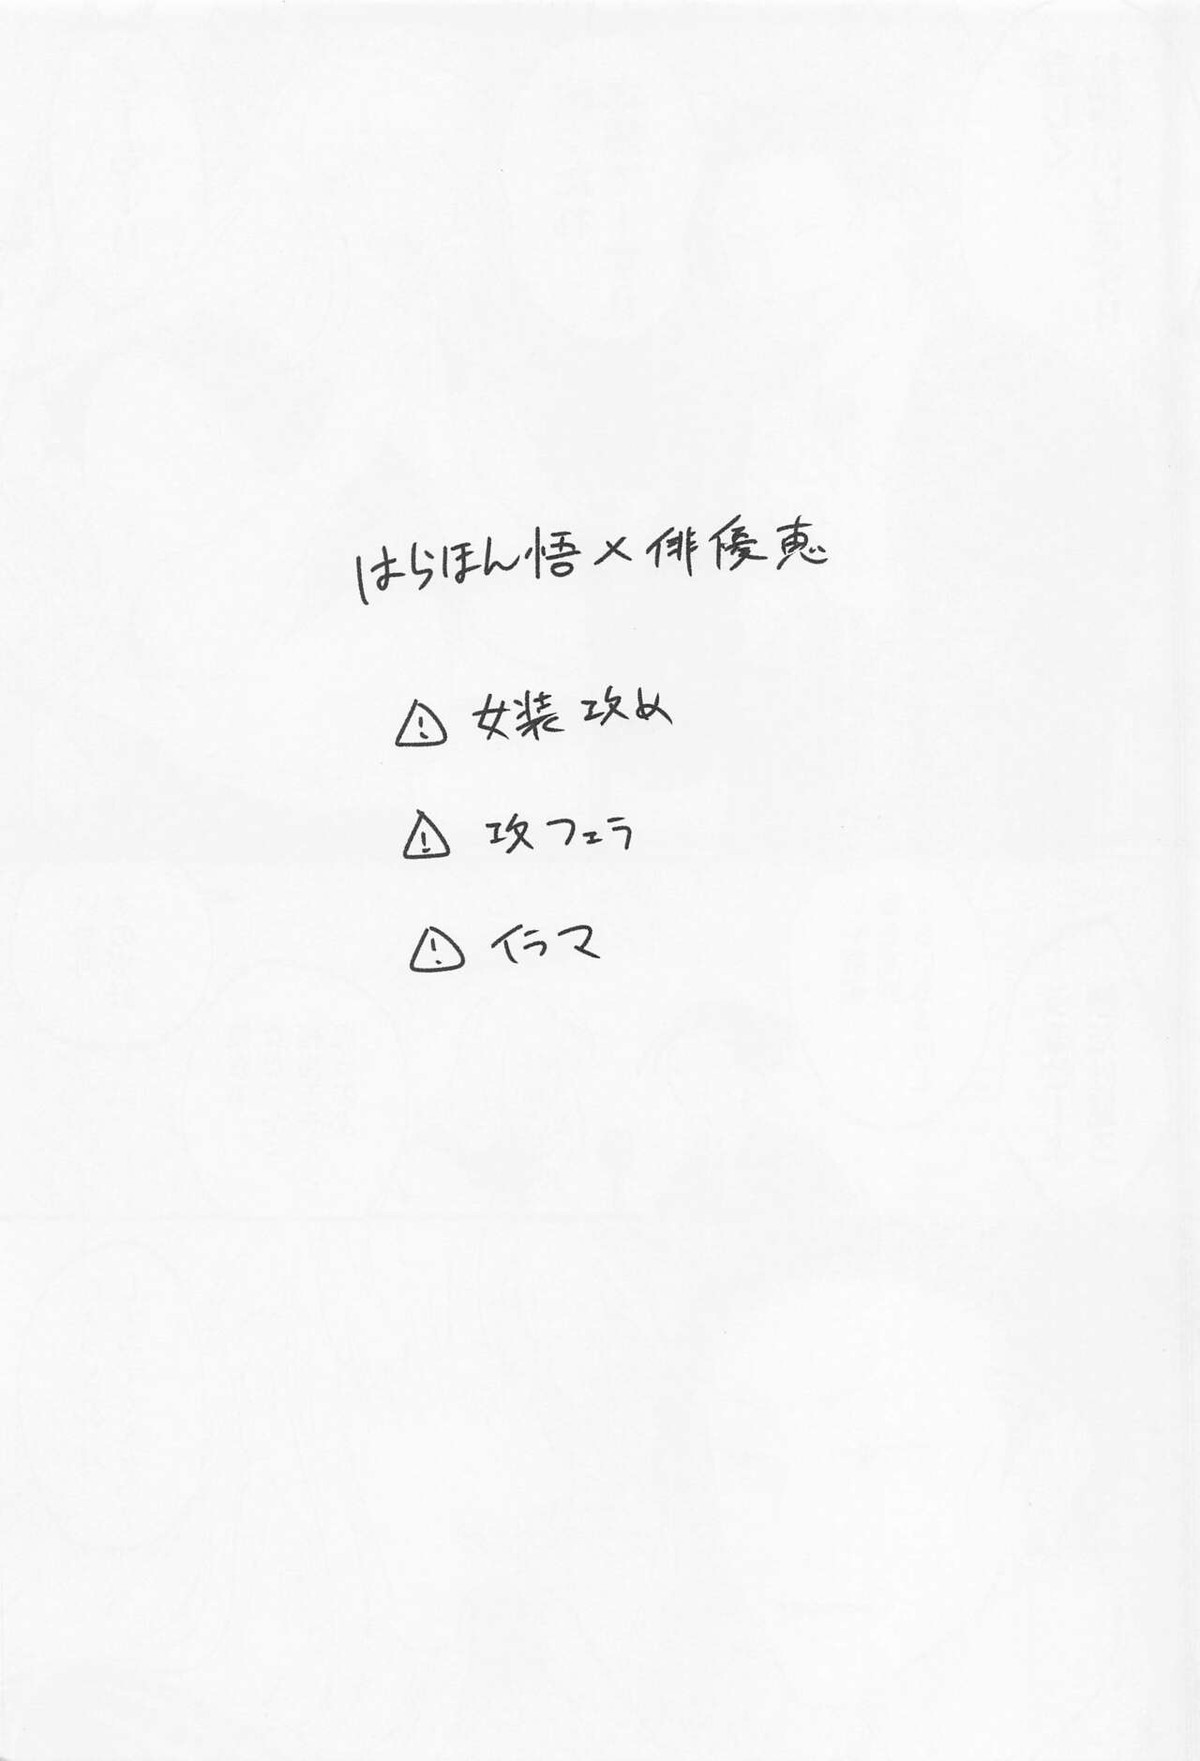 はらほん悟×俳優恵
⚠ 女装攻め
⚠ 攻フェラ
⚠ イラマ